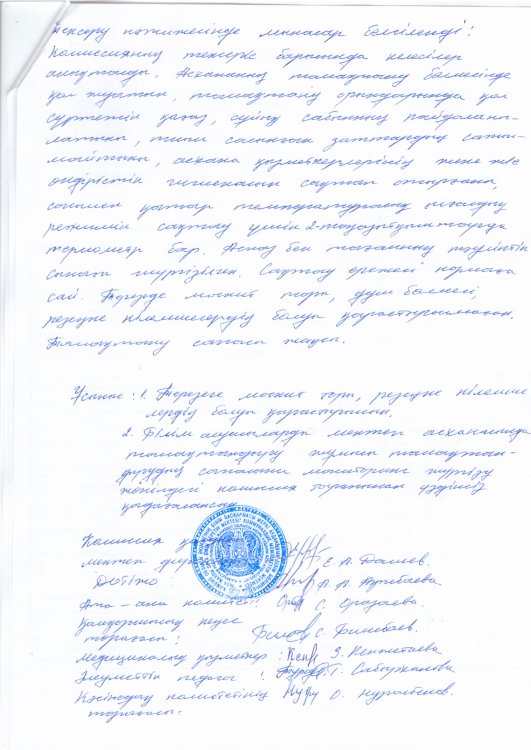 Тексеру нәтижесінде мыналар белгіленді:
Комиссияның тексеру барысында келесілер
анықталды. Асхананың тамақтану бөлмесінде
қол жуатын, тамақтану орындарында қол
сүртетін қағаз, сұйық сабынның пайдаланы-
латыны, тиым салынған заттардың сатыл-
майтыны, асхана қызметкерлерінің жеке бас
өндірістік гигиенасын сақтап отырғаны,
сонымен қатар температураның
режимін сақтау үшін 2-тоңазытқышта
термометр бар. Аспаз бен тағамның тәуліктік
сынағы жүргізілген. Сақтау ережесі нормаға
сай. Терезеде москит торы, душ бөлмесі,
резеңке кілемшелердің болуы қарастырылмаған.
Тамақтану сапасы жақсы.
Ұсыныс: 1. Терезеге москит торы, резеңке кілемше
лердің болуы қарастырылсын.
2. Білім алушыларды мектеп асханасында
тамақтандыру тамақтан-
дырудың сапасына мониторинг жүргізу
жөніндегі комиссия тарапынан үздіксіз
қадағалансын.
Комиссия
мектеп Е. А.
ДОТІЖО: А.
Ата-ана комитеті: С. Оразаева
Қамқоршылық кеңес
төрағасы: С.
Медициналық қызметкер: З. Кенжетаева
Әлеуметтік педагог: Т. Сабыржанова
Кәсіподақ комитетінің О.
төрағасы.